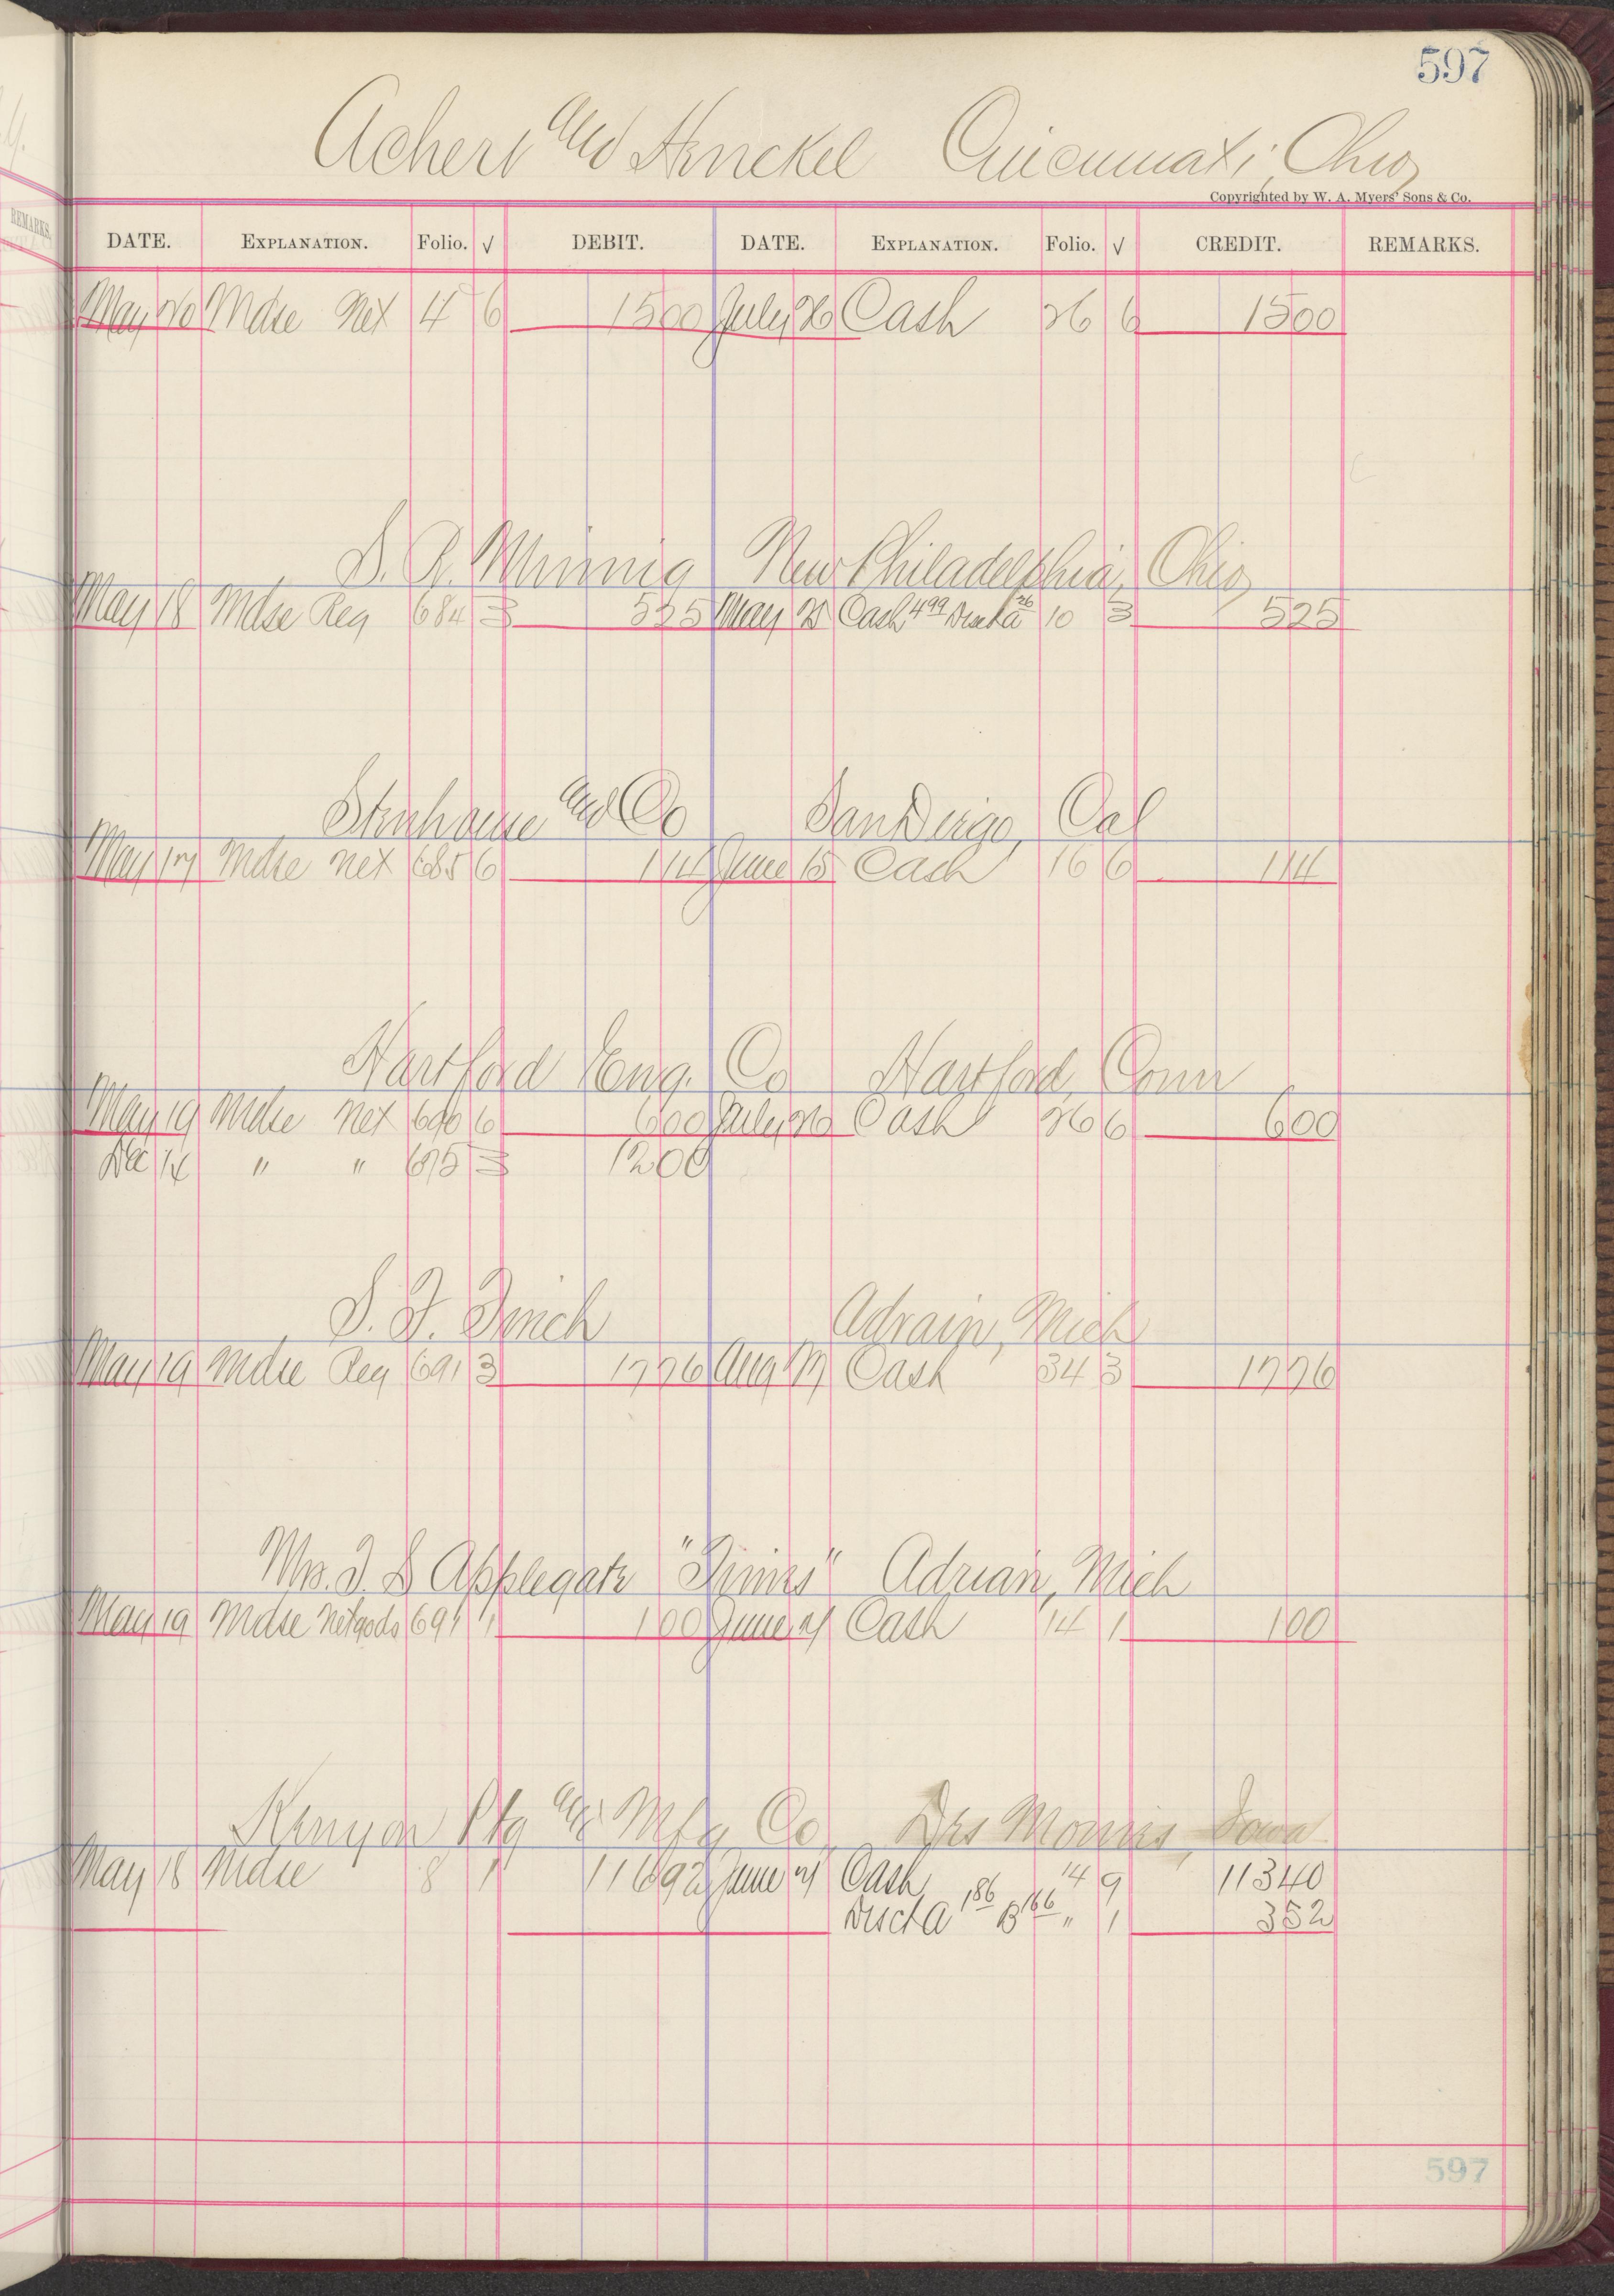 597
Achert and Henckel Cincinnati, Ohio
Copyrighted by W. A. Myers' Sons & Co.
REMARKS.
DATE. EXPLANATION. Folio. √ DEBIT. DATE. EXPLANATION. Folio. √ CREDIT. REMARKS.
May 20 Mdse Net 4 6 1500 July 26 Cash 26 6 1500
S. R. Minnig New Philadelphia, Ohio
May 18 Mdse Reg 684 3 525 May 25 Cash 499 Disct a 26 10 3 525
Stenhouse and Co San Diego, Cal
May 17 Mdse Net 685 6 114 June 15 Cash 16 6 114
Hartford Eng. Co Hartford, Conn
May 19 Mdse Net 690 6 600 July 26 Cash 26 6 600
Dec 14 " " 675 3 1200
S. F. Finch Adrain, Mich
May 19 Mdse Reg 691 3 1776 Aug 17 Cash 34 3 1776
Mrs. T. S Applegate "Times" Adrian, Mich
May 19 Mdse Net gods 691 1 100 June 7 Cash 14 1 100
Kenyon Ptg and Mfg Co, Des Moines, Iowa
May 18 Mdse 8 1 11692 June 7 Cash 14 9 11340
Disct A 186 B 166 " 1 352
597